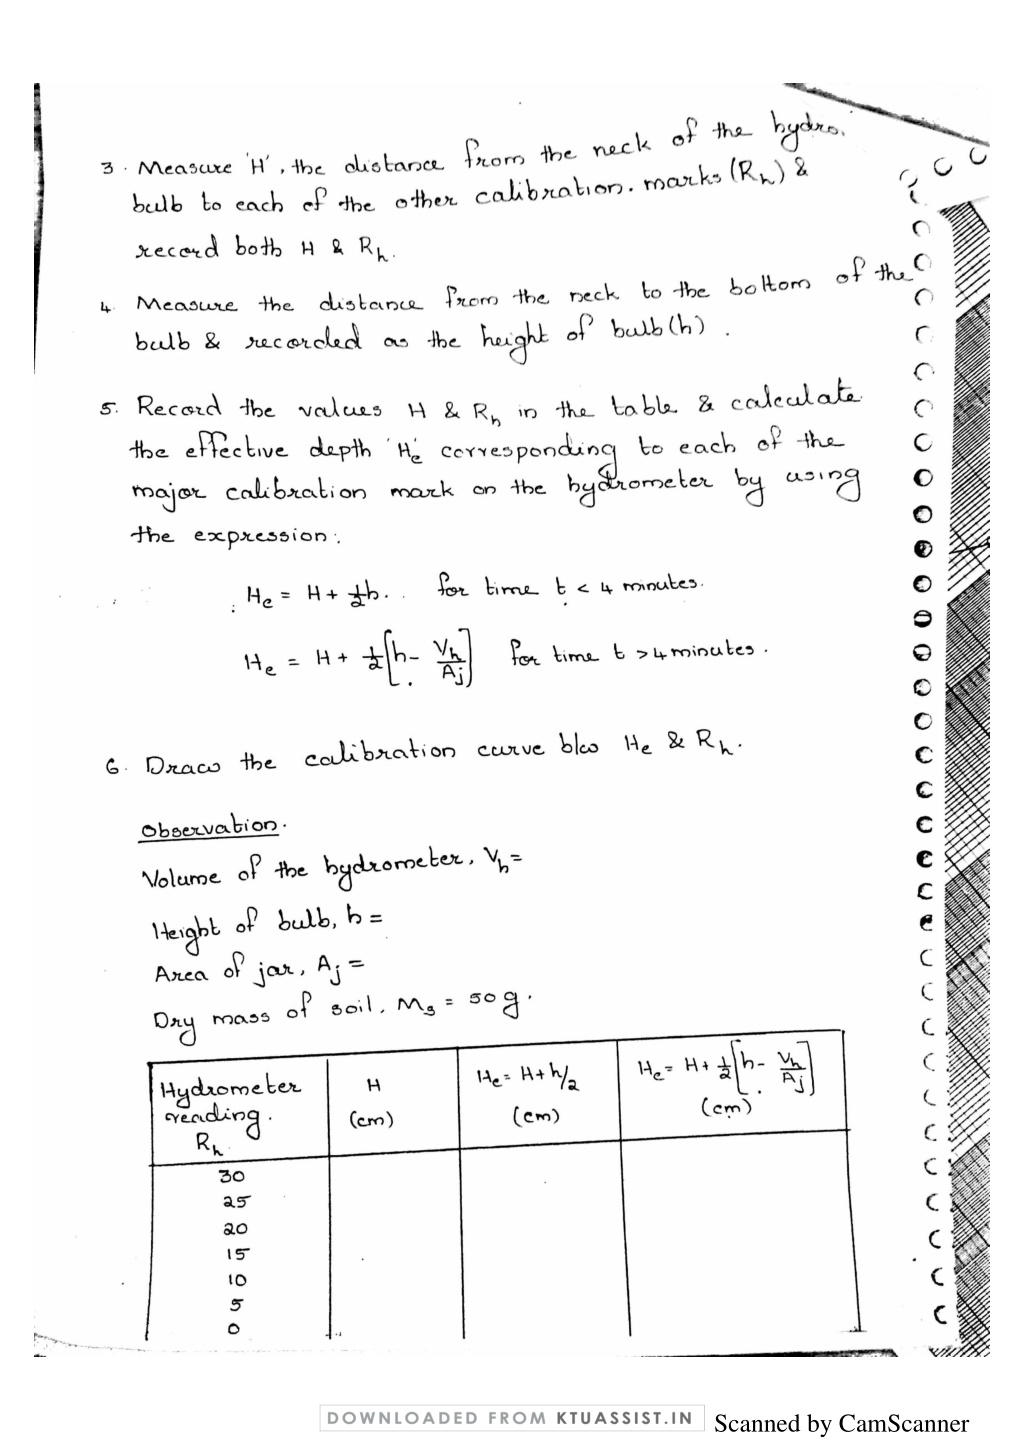 3. Measure 'H', the distance from the neck of the hydro.
bulb to each of the other calibration. marks (Rh) &
record both H & Rh.
4. Measure the distance from the neck to the bottom of the
bulb & recorded as the height of bulb (h).
5. Record the values H & Rh in the table & calculate
the effective depth 'He' corresponding to each of the
major calibration mark on the hydrometer by using
the expression:
He = H + 1/2 h. for time t < 4 minutes.
He = H + 1/2 [h - Vh/Aj] for time t > 4 minutes.
6. Draw the calibration curve b/w He & Rh.
Observation.
Volume of the hydrometer, Vh =
Height of bulb, h =
Area of jar, Aj =
Dry mass of soil, Ms = 50 g.
Hydrometer reading. Rh H (cm) He = H + h/2 (cm) He = H + 1/2 [h - Vh/Aj] (cm)
30
25
20
15
10
5
0
DOWNLOADED FROM KTUASSIST.IN Scanned by CamScanner